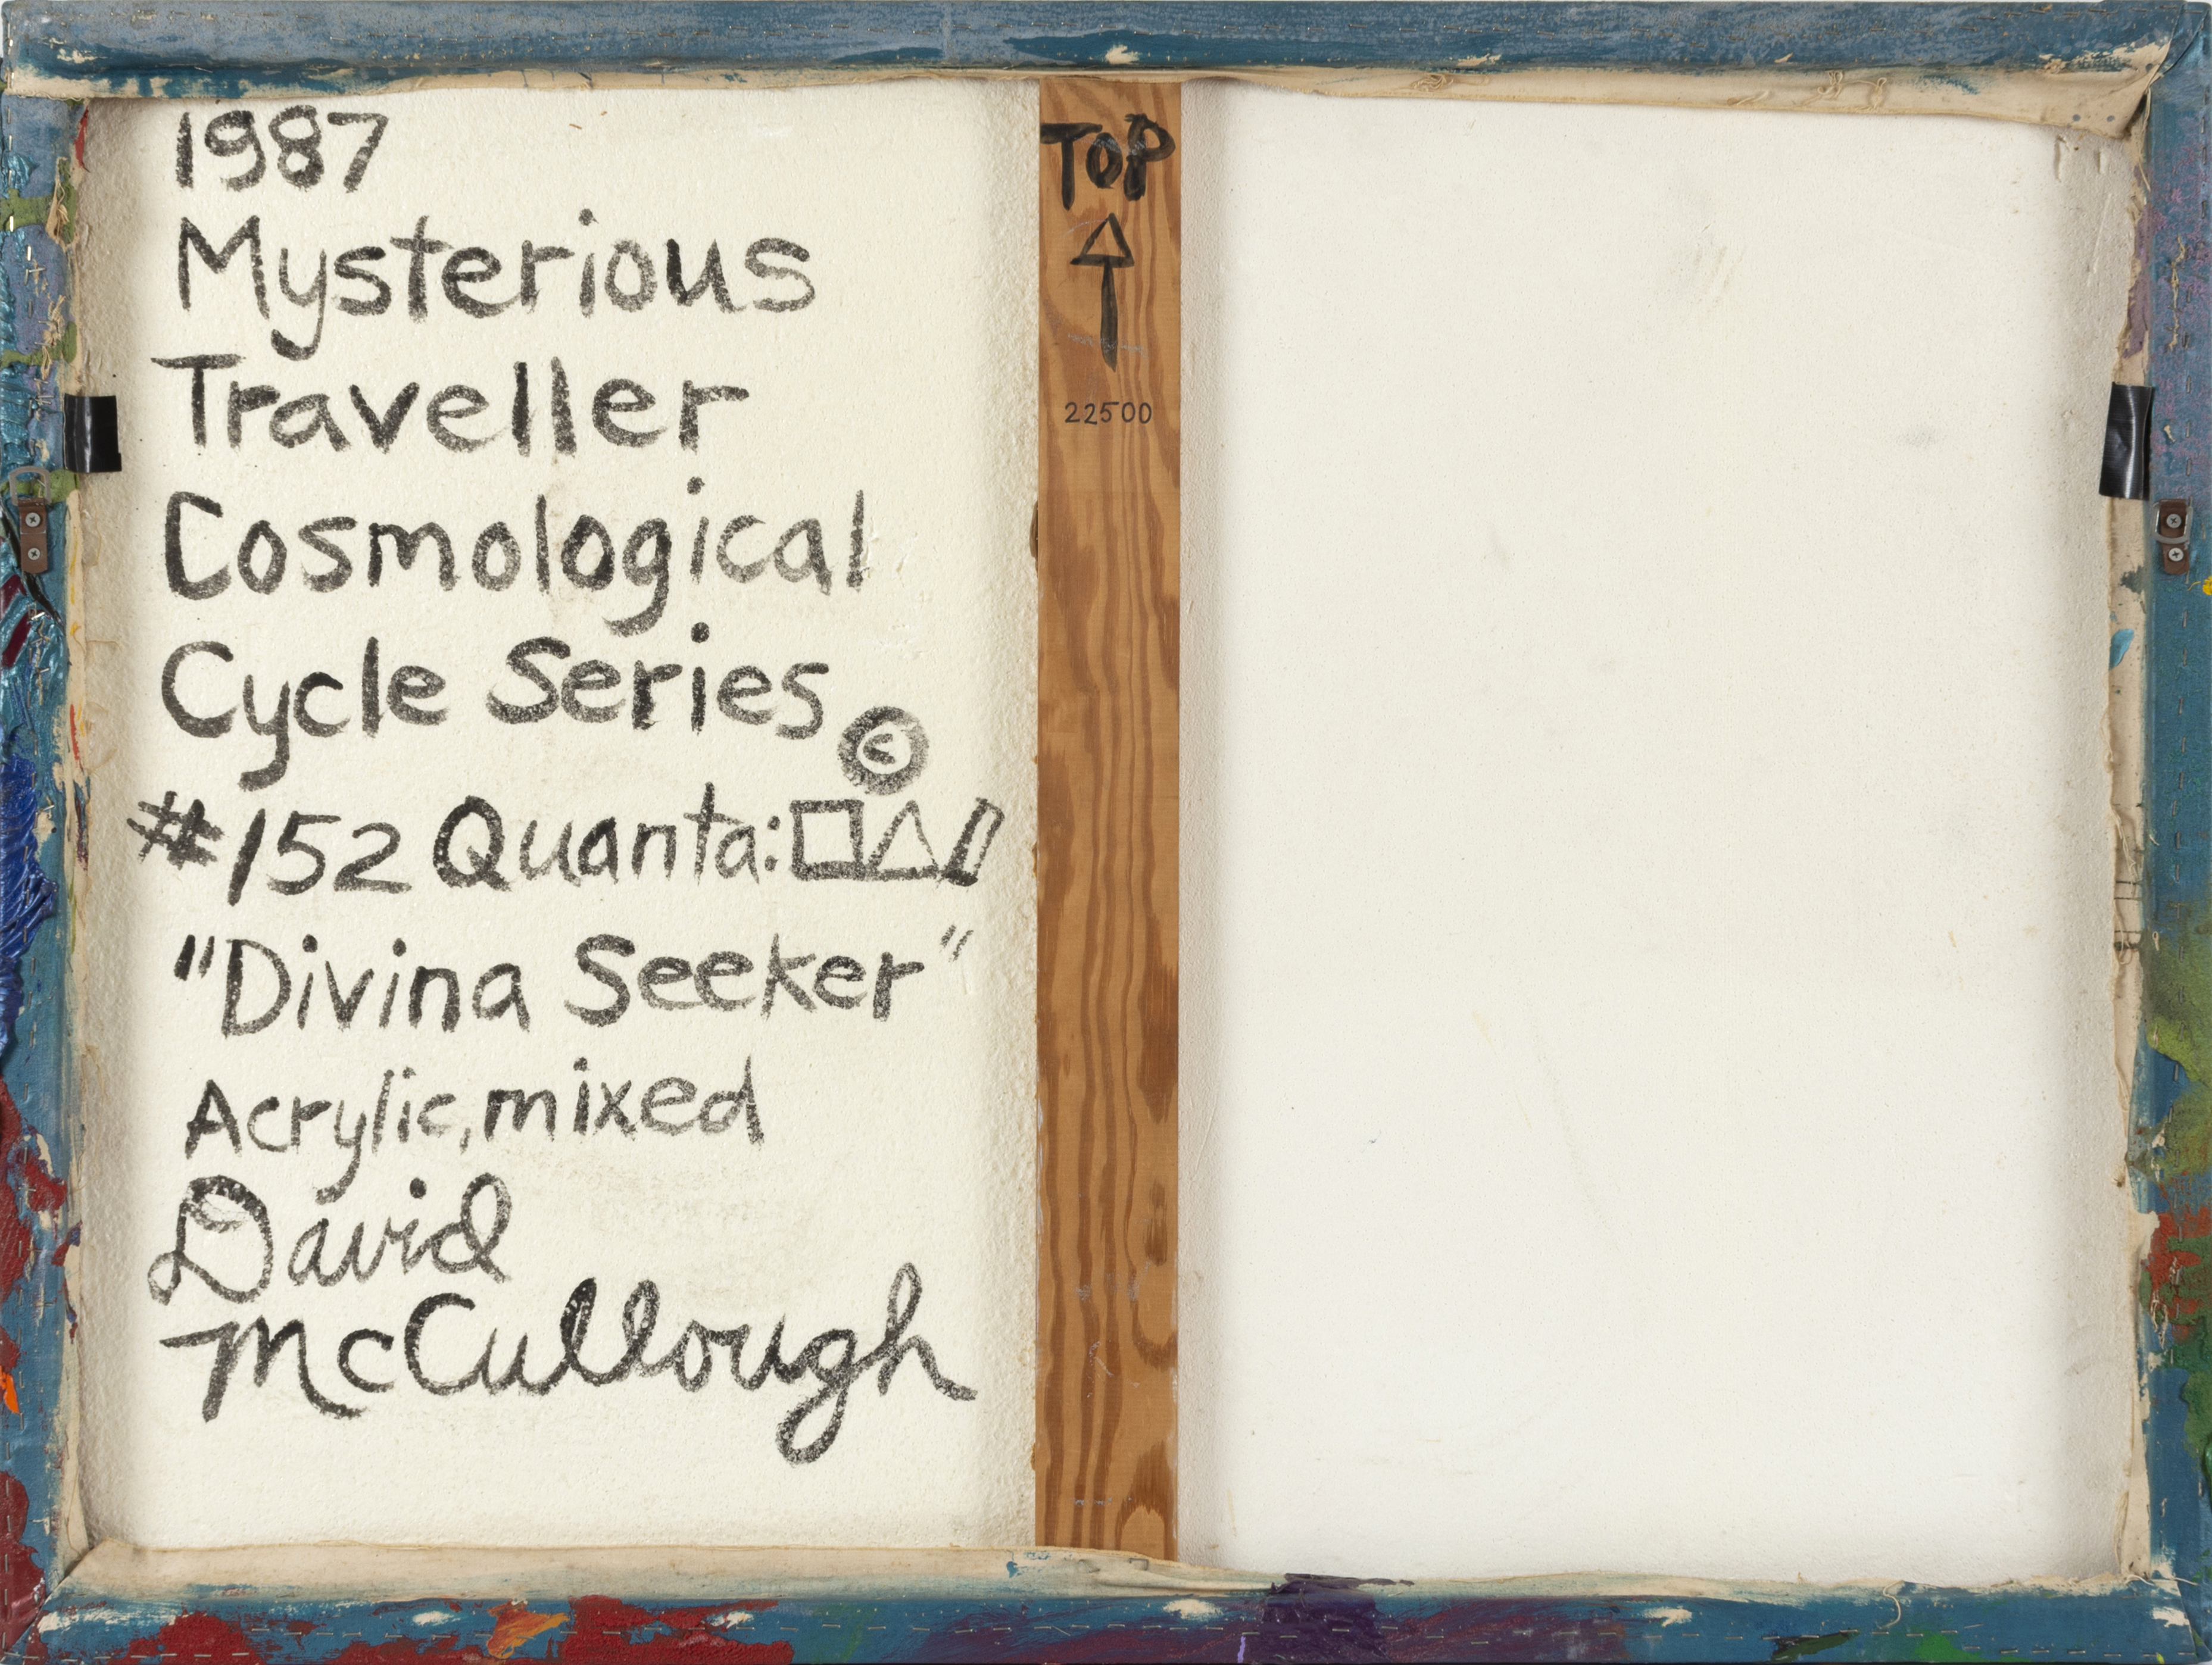 1987
Mysterious
Traveller
Cosmological
Cycle Series ©
#152 Quanta: □△▯
"Divina Seeker"
Acrylic, mixed
David
McCullough
TOP
↑
22500